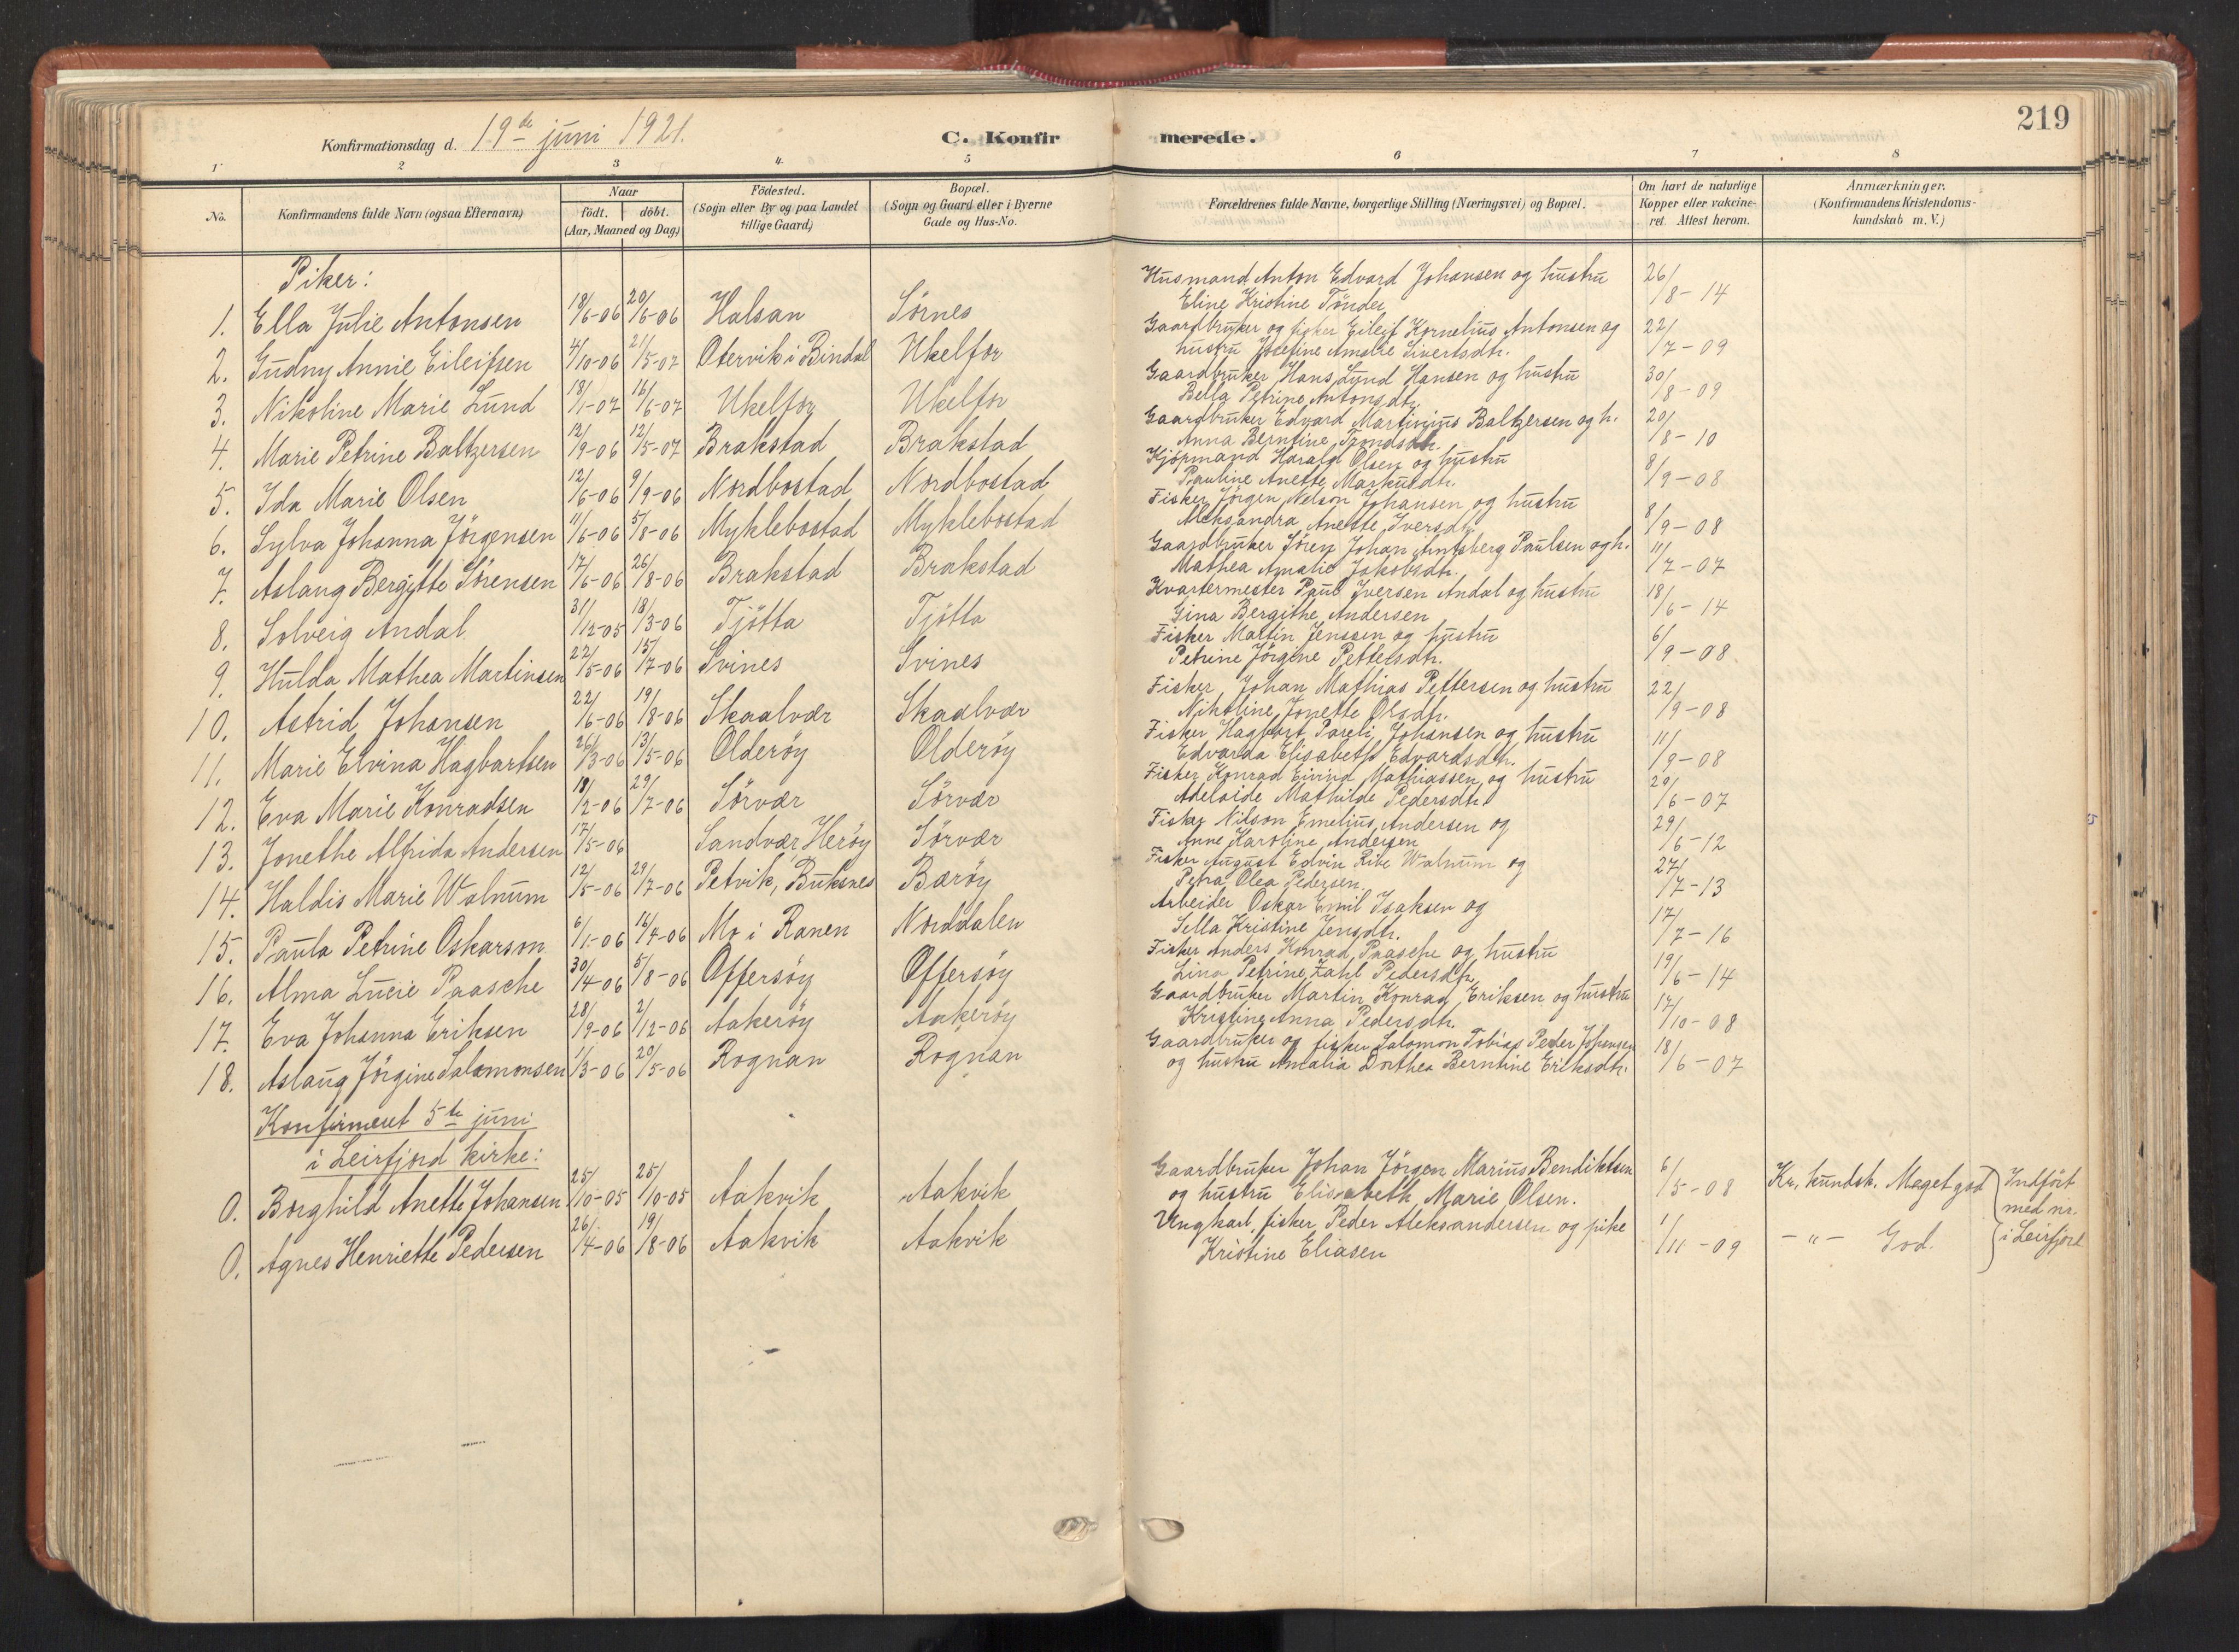 219
Konfirmationsdag d. 19de juni 1921.
C. Konfirmerede.
1 2 3 4 5 6 7 8
No.
Konfirmandens fulde Navn (ogsaa Efternavn)
Naar
födt. döbt.
(Aar, Maaned og Dag)
Födested.
(Sogn eller By og paa Landet
tillige Gaard)
Bopæl.
(Sogn og Gaard eller i Byerne
Gade og Hus-No.
Forældrenes fulde Navne, borgerlige Stilling (Næringsvei) og Bopæl.
Om havt de naturlige
Kopper eller vakcine-
ret. Attest herom.
Anmærkninger.
(Konfirmandens Kristendoms-
kundskab m. V.)
Piker:
1. Ella Julie Antonsen 18/6-06 20/6-06 Halsan Sörnes Husmand Anton Edvard Johansen og hustru 26/8-14
Eline Kristine Tönder
2. Gudny Annie Eileifsen 4/10-06 21/5-07 Otervik i Bindal Ukelfor Gaardbruker og fisker Eileif Kornelius Antonsen og 22/7-09
hustru Josefine Amalie Sivertsdtr.
3. Nikoline Marie Lund 18/1-07 16/6-07 Ukelfor Ukelfor Gaardbruker Hans Lund Hansen og hustru 30/8-09
Bella Petrine Antonsdtr.
4. Marie Petrine Baltzersen 12/9-06 12/5-07 Brakstad Brakstad Gaardbruker Edvard Martinius Baltzersen og h. 20/8-10
Anna Berntine Trondsdtr.
5. Ida Marie Olsen 12/6-06 9/9-06 Nordbostad Nordbostad Kjöpmand Harald Olsen og hustru 8/9-08
Pauline Anette Markusdtr.
6. Sylva Johanna Jörgensen 11/6-06 5/8-06 Myklebostad Myklebostad Fisker Jörgen Nelson Johansen og hustru 8/9-08
Aleksandra Anette Iversdtr.
7. Aslaug Bergitte Sörensen 17/6-06 26/8-06 Brakstad Brakstad Gaardbruker Sören Johan Paulsen og h. 11/7-07
Mathea Amalie Jakobsdtr.
8. Solveig Andal 31/12-05 18/3-06 Tjötta Tjötta Kvartermester Paul Iversen Andal og hustru 18/6-14
Gina Bergithe Andersen
9. Hulda Mathea Martinsen 22/5-06 15/7-06 Svines Svines Fisker Martin Jenssen og hustru 6/9-08
Petrine Jörgine Pettersdtr.
10. Astrid Johansen 22/6-06 19/8-06 Skaalvær Skaalvær Fisker Johan Mathias Pettersen og hustru 22/9-08
Nikoline Jonette Olsdtr.
11. Marie Elvina Hagbartsen 26/3-06 13/5-06 Olderöy Olderöy Fisker Hagbart Pareli Johansen og hustru 11/9-08
Edvarda Elisabeth Edvardsdtr.
12. Eva Marie Konradsen 18/2-06 29/7-06 Sörvær Sörvær Fisker Konrad Eivind Mathiassen og hustru 29/6-07
Adelaide Mathilde Pedersdtr.
13. Jonethe Alfrida Andersen 17/5-06 Sandvær Heröy Sörvær Fisker Nilson Emelius Andersen og 29/6-12
Anne Karoline Andersen
14. Haldis Marie Walnum 12/5-06 29/7-06 Petvik, Buksnes Bæröy Fisker August Edvin Ribe Walnum og 27/7-13
Petra Olea Pedersen.
15. Paula Petrine Oskarson 6/1-06 16/4-06 Mo i Ranen Norddalen Arbeider Oskar Emil Isaksen og 17/7-16
Silla Kristine Jensdtr.
16. Alma Lucie Paasche 30/4-06 5/8-06 Offersöy Offersöy Fisker Anders Konrad Paasche og hustru 19/6-14
Lina Petrine Zahl Pedersdtr.
17. Eva Johanna Eriksen 28/9-06 2/12-06 Aakeröy Aakeröy Gaardbruker Martin Konrad Eriksen og hustru 17/10-08
Kristine Anna Pedersdtr.
18. Aslaug Jörgine Salomonsen 1/3-06 20/5-06 Rognan Rognan Gaardbruker og fisker Salomon Tobias Peder Johansen 18/6-07
og hustru Amalia Dorthea Berntine Eriksdtr.
Konfirmeret 5te juni
i Leirfjord kirke:
0. Borghild Anette Johansen 25/10-05 25/10-05 Aakvik Aakvik Gaardbruker Johan Jörgen Marius Bendiktsen 6/5-08 Kr. kundsk. Meget god Indfört
og hustru Elisabeth Marie Olsen. med nr.
0. Agnes Henriette Pedersen 26/4-06 19/8-06 Aakvik Aakvik Ungkarl, fisker Peder Aleksandersen og pike 1/11-09 -"- God. i Leirfjord
Kristine Eliasen